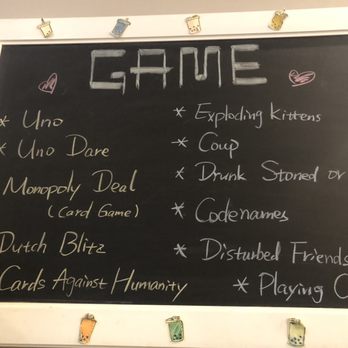 GAME
* Uno
* Uno Dare
Monopoly Deal
(Card Game)
Dutch Blitz
Cards Against Humanity
* Exploding Kittens
* Coup
* Drunk Stoned or
* Codenames
* Disturbed Friends
* Playing